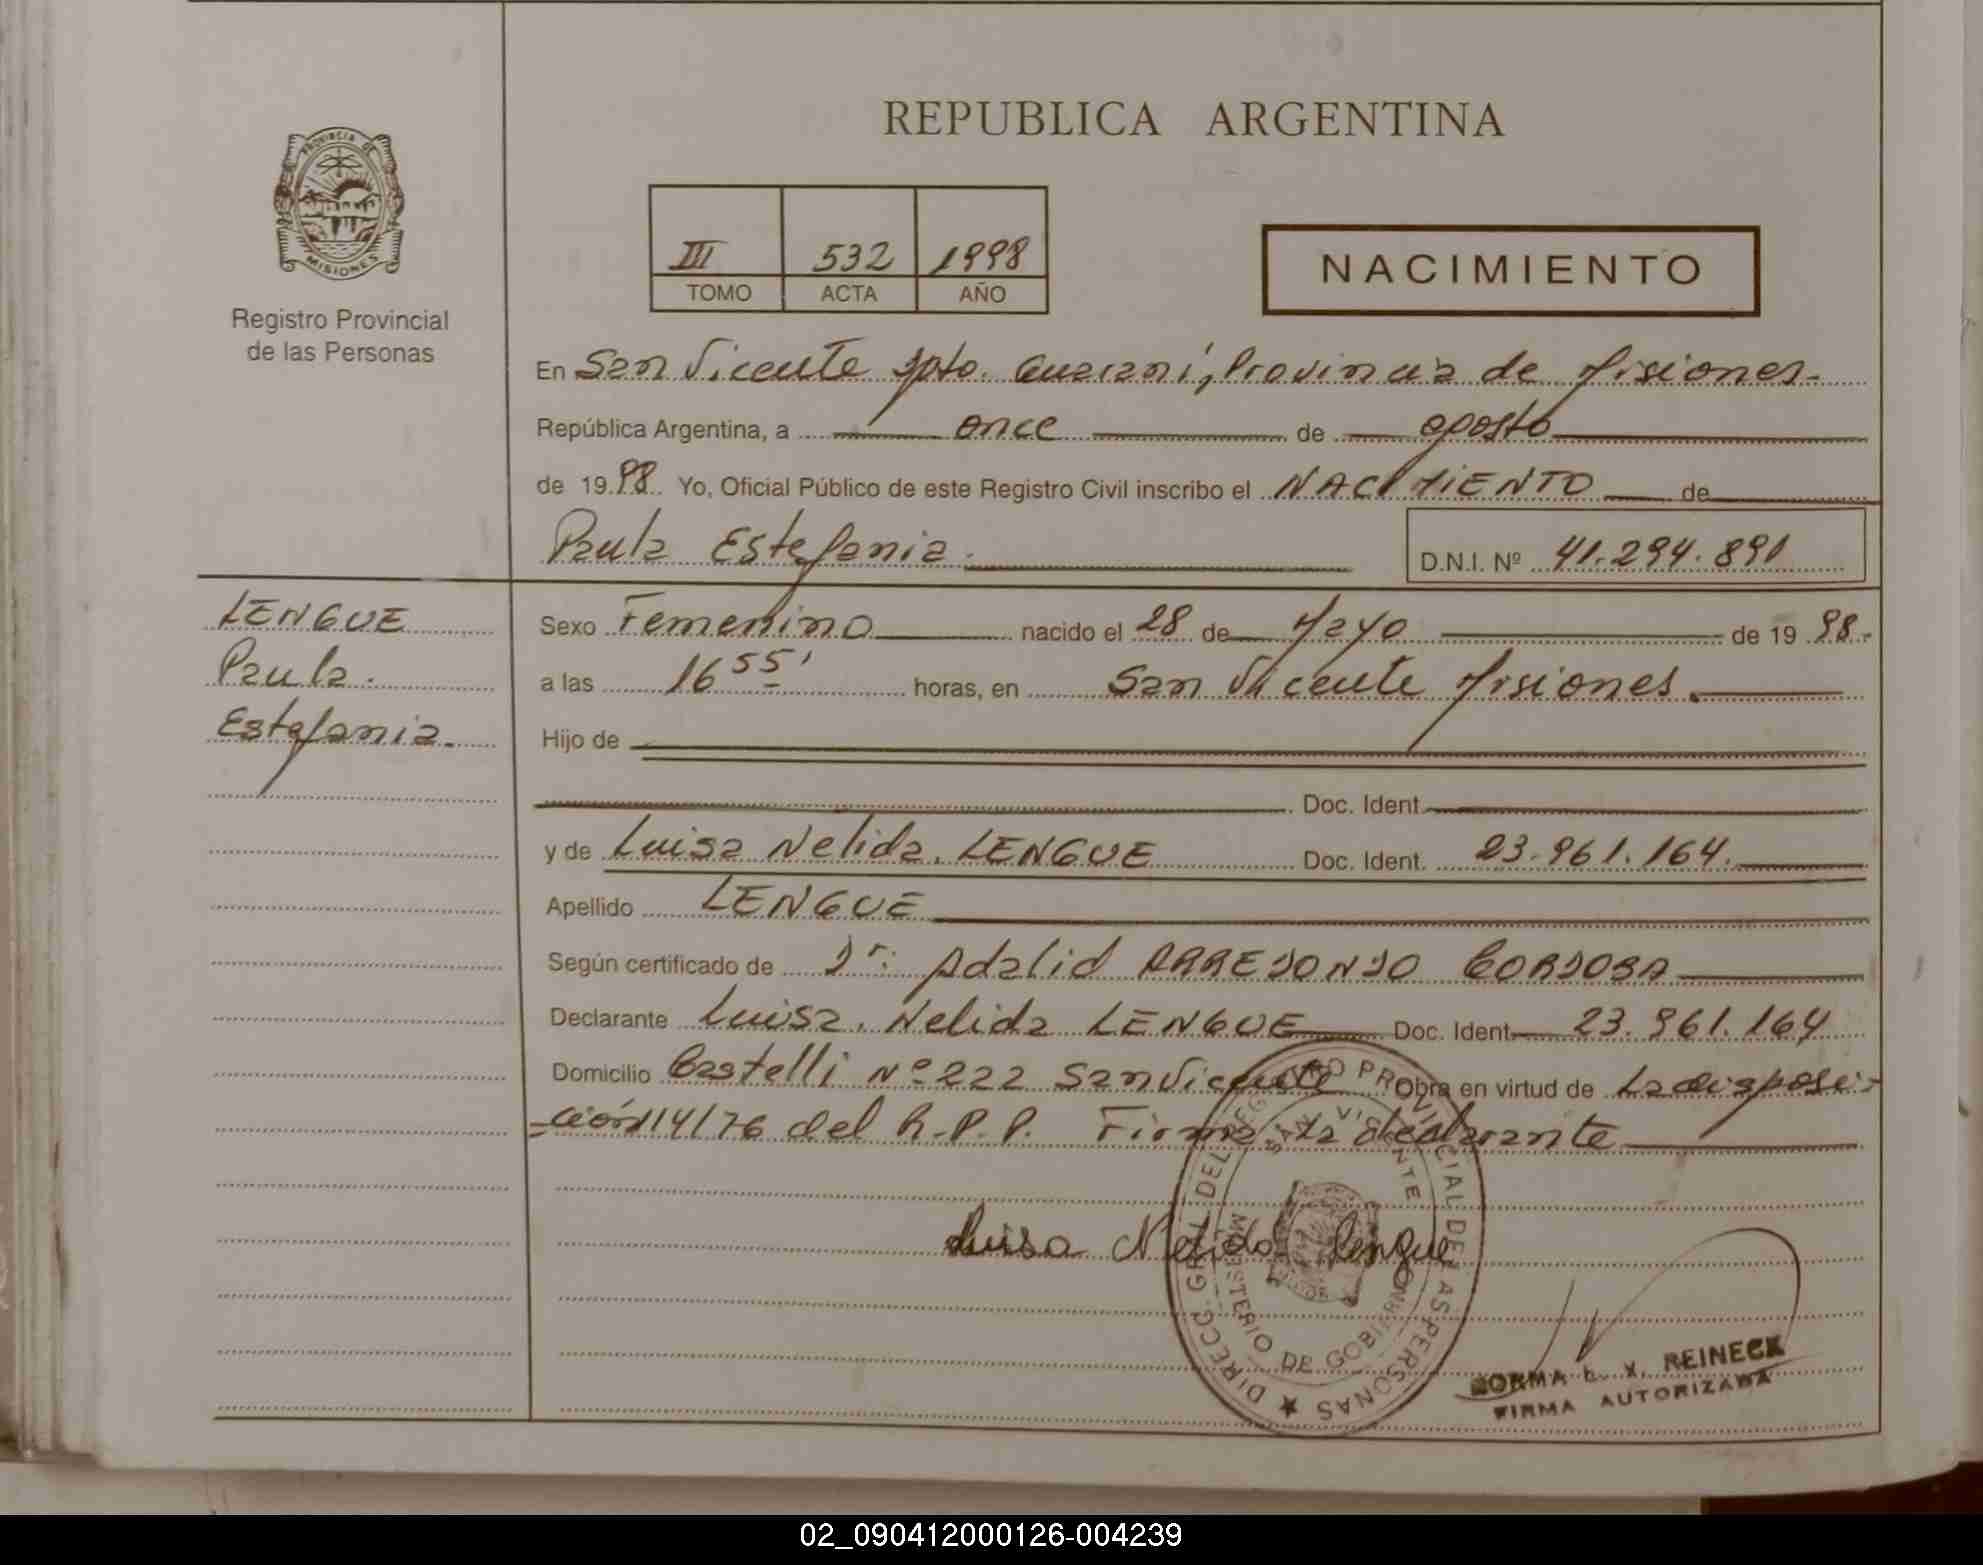 REPUBLICA ARGENTINA
PROVINCIA DE
MISIONES
Registro Provincial
de las Personas
III 532 1998
TOMO ACTA AÑO
NACIMIENTO
En San Vicente Dpto. Guarani, Provincia de Misiones.
República Argentina, a once de agosto
de 1998. Yo, Oficial Público de este Registro Civil inscribo el NACIMIENTO de
Paula Estefania. D.N.I. Nº 41.294.891
LENGUE
Paula.
Estefania.
Sexo Femenino nacido el 28 de Mayo de 1998.
a las 16 55' horas, en San Vicente Misiones.
Hijo de
Doc. Ident.
y de Luisa Nelida. LENGUE Doc. Ident. 23.961.164.
Apellido LENGUE
Según certificado de Dr. Adalid ARREDONDO CORDOBA
Declarante Luisa. Nelida LENGUE Doc. Ident. 23.961.164
Domicilio Castelli Nº 222 San Vicente Obra en virtud de La disposi-
-ción 14/76 del R.P.P. Firma La declarante
Luisa Nelida Lengue
DIRECC. GRAL. DEL REGISTRO PROVINCIAL DE LAS PERSONAS
SAN VICENTE
MINISTERIO DE GOBIERNO
NORMA L. X. REINECK
FIRMA AUTORIZADA
02_090412000126-004239